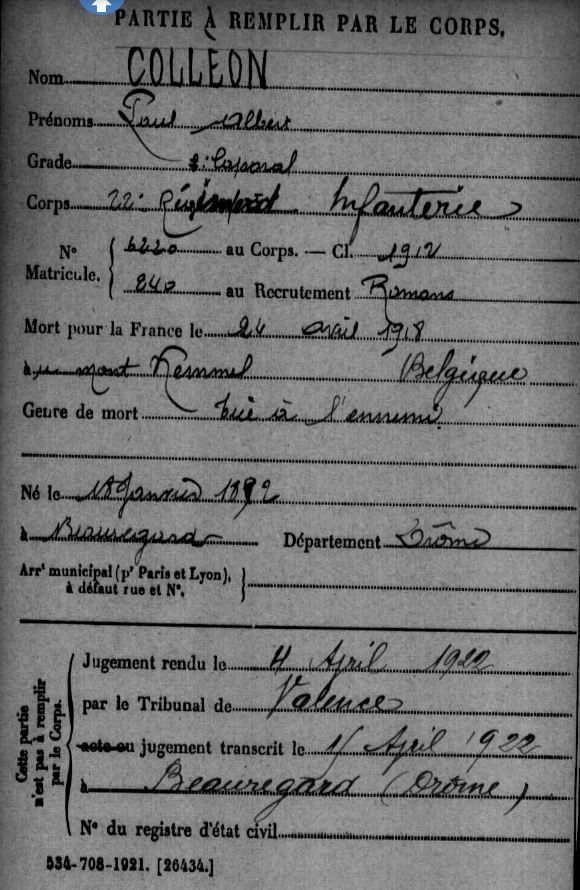 PARTIE À REMPLIR PAR LE CORPS.
Nom COLLÉON
Prénoms Paul Albert
Grade Caporal
Corps 22e Régiment Infanterie
N° Matricule. 6220 au Corps. — Cl. 1912
240 au Recrutement Romans
Mort pour la France le 24 avril 1918
à mont Kemmel Belgique
Genre de mort tué à l'ennemi
Né le 18 Janvier 1892
à Beauregard Département Drôme
Arrt municipal (pr Paris et Lyon),
à défaut rue et N°.
Cette partie
n'est pas à remplir
par le Corps.
Jugement rendu le 4 April 1922
par le Tribunal de Valence
acte ou jugement transcrit le April 1922
à Beauregard (Drôme)
N° du registre d'état civil
534-708-1921. [26434.]